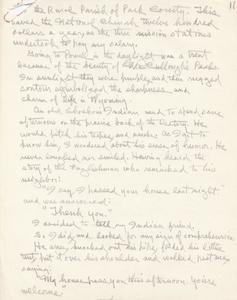 11
the Rural Parish of Park County. This
saved the National Church twelve hundred
dollars a year as the three mission stations
undertook to pay my salary.
Going to Powell in the daylight was a treat
because of the beauty of the McCullough Peaks.
In sunlight they were purple, and their rugged
contour symbolized the sharpness and
charm of life in Wyoming.
An old Shoshoni Indian used to spend some
afternoons on the prairie back of the Rectory. He
would pitch his tepee and smoke. As I got to
know him, I wondered about his sense of humor. He
never laughed nor smiled. Having heard the
story of the Englishman who remarked to his
neighbor:
"I say, I passed your house last night"
and was answered:
"Thank you."
I decided to tell my Indian friend.
So I did and looked for any sign of comprehension.
He arose, knocked out his pipe, folded his tepee
and put it over his shoulder and walked past me
saying:
"My house pass you this afternoon. You're
welcome."